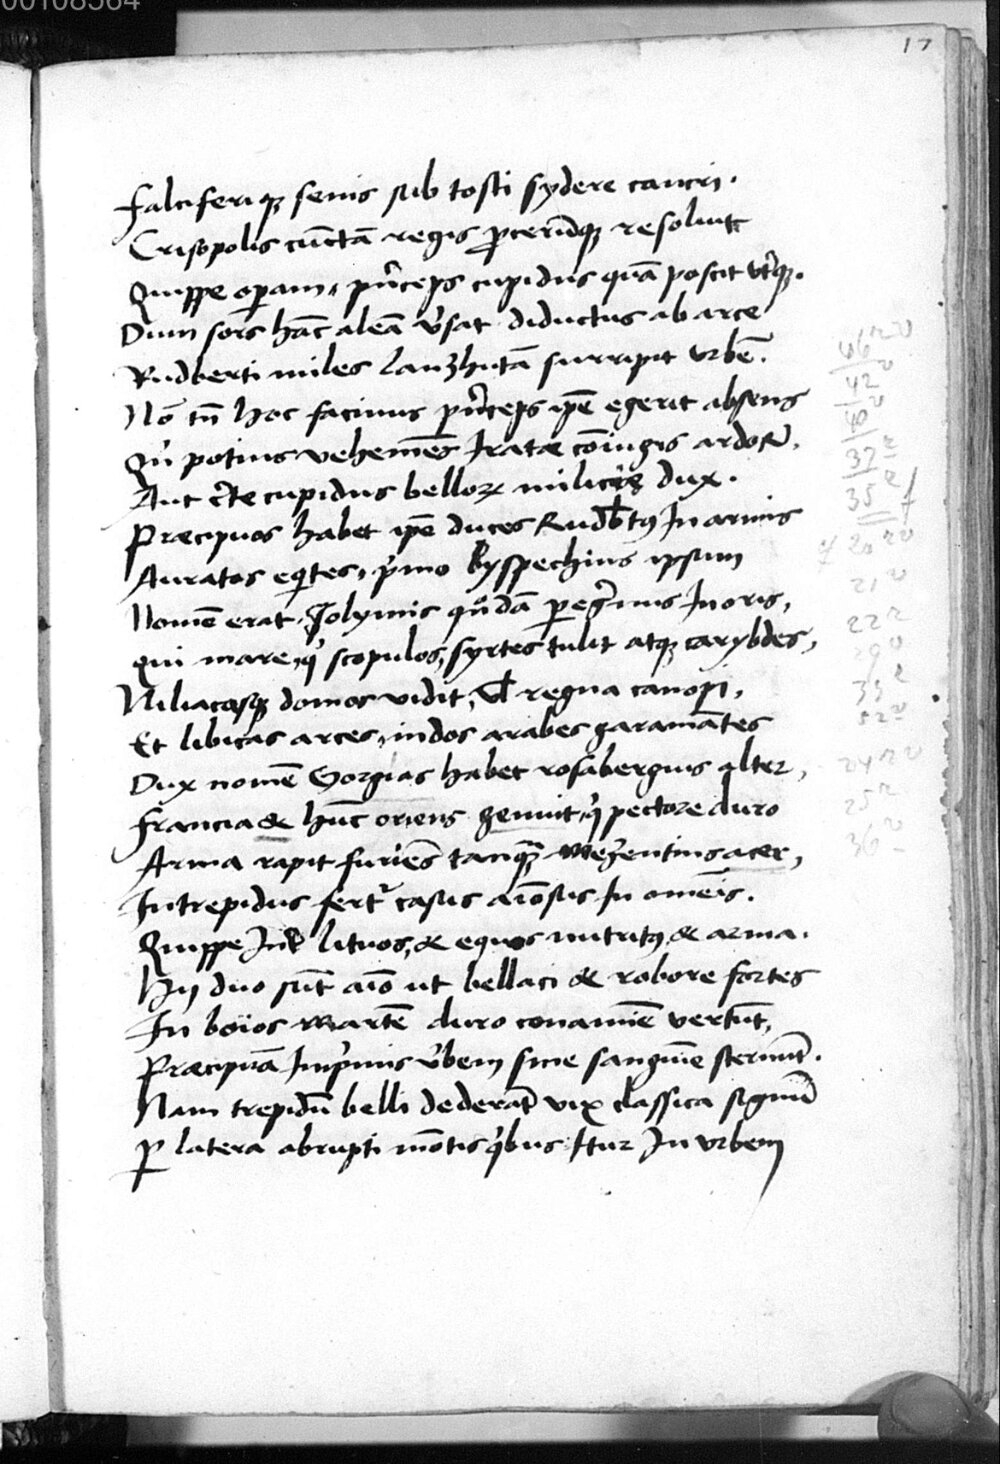 00108584
17
Falciferiq; senis sub tosti sydere cancri.
Crisopolis cūctā regis ꝓcerūdq; resoluit
Quippe operam, pr̄iceps cupidus quā poscit vtrq;.
Dum sors hāc aleā v̄sat diductus ab arce
Rudberti miles Lanzhutā surripit vrbē.
Nō tn̄ hoc facinus pr̄iceps ip̄e egerit absens
Qn̄ potius vehemēs Iratæ cōiugis ardor,
Aut c̄te cupidus belloꝝ milicięq; dux.
Præcipuos habet ip̄e duces Rudb̄tꝰ In armis
Auratos eq̄tes, p̄mo Byspechius ipsum
Nomē erat, Solymis quōdā peregr̄inus In oris,
Qui mare, q̄ scopulos, syrtes tulit atq; carybdes,
Niliacasq; domos vidit, vl̄ regna canopi,
Et libicas arces, indos arabes garamātes
Dux nomē Gorgias habet rosabergius alter,
Francia & hūc oriens genuit, q̄ pectore duro
Arma rapit furiēs tanq̄ Mezentius acer,
Intrepidus fert̄ casus aīosus In omēis.
Quippe Int̄ lituos, & equos nutritꝰ & arma.
Hij duo sūt aīo ut bellaci & robore fortes
In boios martē duro conamīe vertūt,
Præcipuā Inp̄mis v̄bem sine sanguīe sternūt.
Nam trepidū belli dederāt vix classica signū
P̱ latera abrupti mōtis q̄bus Itur In vrbem
42
37
35
20
21
22
29
33
52
24
25
36